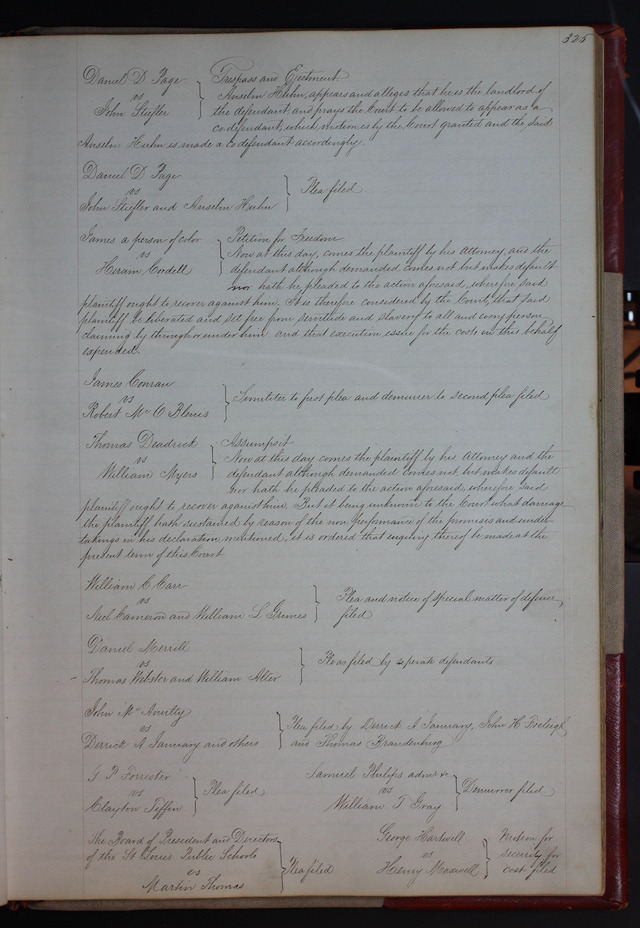 325
Daniel D. Page
vs
John Stiefler
Trespass and Ejectment
Anselm Huhn, appears and alleges that he is the landlord of
the defendant and prays the Court to be allowed to appear as a
co defendant, which motion is by the Court granted and the said
Anselm Huhn is made a Co defendant accordingly.
Daniel D. Page
vs
John Stiefler and Anselm Huhn
Plea filed
James a person of color
vs
Hiram Cordell
Petition for Freedom
Now at this day, comes the plaintiff by his Attorney, and the
defendant although demanded comes not but makes default
nor hath he pleaded to the action aforesaid, wherefore said
plaintiff ought to recover against him. It is therefore considered by the Court, that said
plaintiff be liberated and set free from servitude and slavery to all and every person
claiming by through or under him. and that execution issue for the costs in this behalf
expended.
James Conran
vs
Robert Mc O Blenis
Similiter to first plea and demurrer to second plea filed
Thomas Deadrick
vs
William Myers
Assumpsit
Now at this day comes the plaintiff by his Attorney and the
defendant although demanded comes not, but makes default
nor hath he pleaded to the action aforesaid, wherefore said
plaintiff ought to recover against him. But it being unknown to the Court what damage
the plaintiff hath sustained by reason of the non performance of the promises and under-
takings in his declaration mentioned, it is ordered that inquiry thereof be made at the
present term of this Court
William C. Carr
vs
Neil Cameron and William L Grimes
Plea and notice of special matter of defence,
filed
Daniel Merrill
vs
Thomas Webster and William Alter
Pleas filed by seperate defendants
John Mc
vs
Derrick A January and others
Plea filed by Derrick A January, John H
and Thomas Brandenburg
P Forrester
vs
Clayton Tiffin
Plea filed
Samuel Philips admr &c
vs
William T Gray
Demurrer filed
The Board of President and Directors
of the St Louis Public Schools
vs
Martin Thomas
Plea filed
George Hartwell
vs
Henry Maxwell
Motion for
security for
cost filed